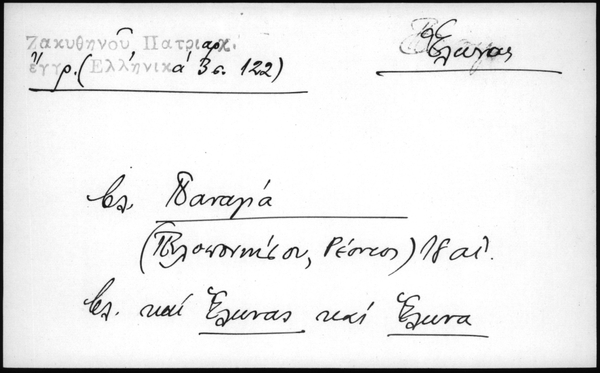 Ζακυθηνοῦ Πατριαρχ.
ἔγγρ. (Ἑλληνικά 3 σ. 122)
Ἔλωνας
βλ. Παναγιά
(Πελοποννήσου, Ρέοντος) 18 αἰ.
βλ. καί Ἔλωνας καί Ἔλωνα